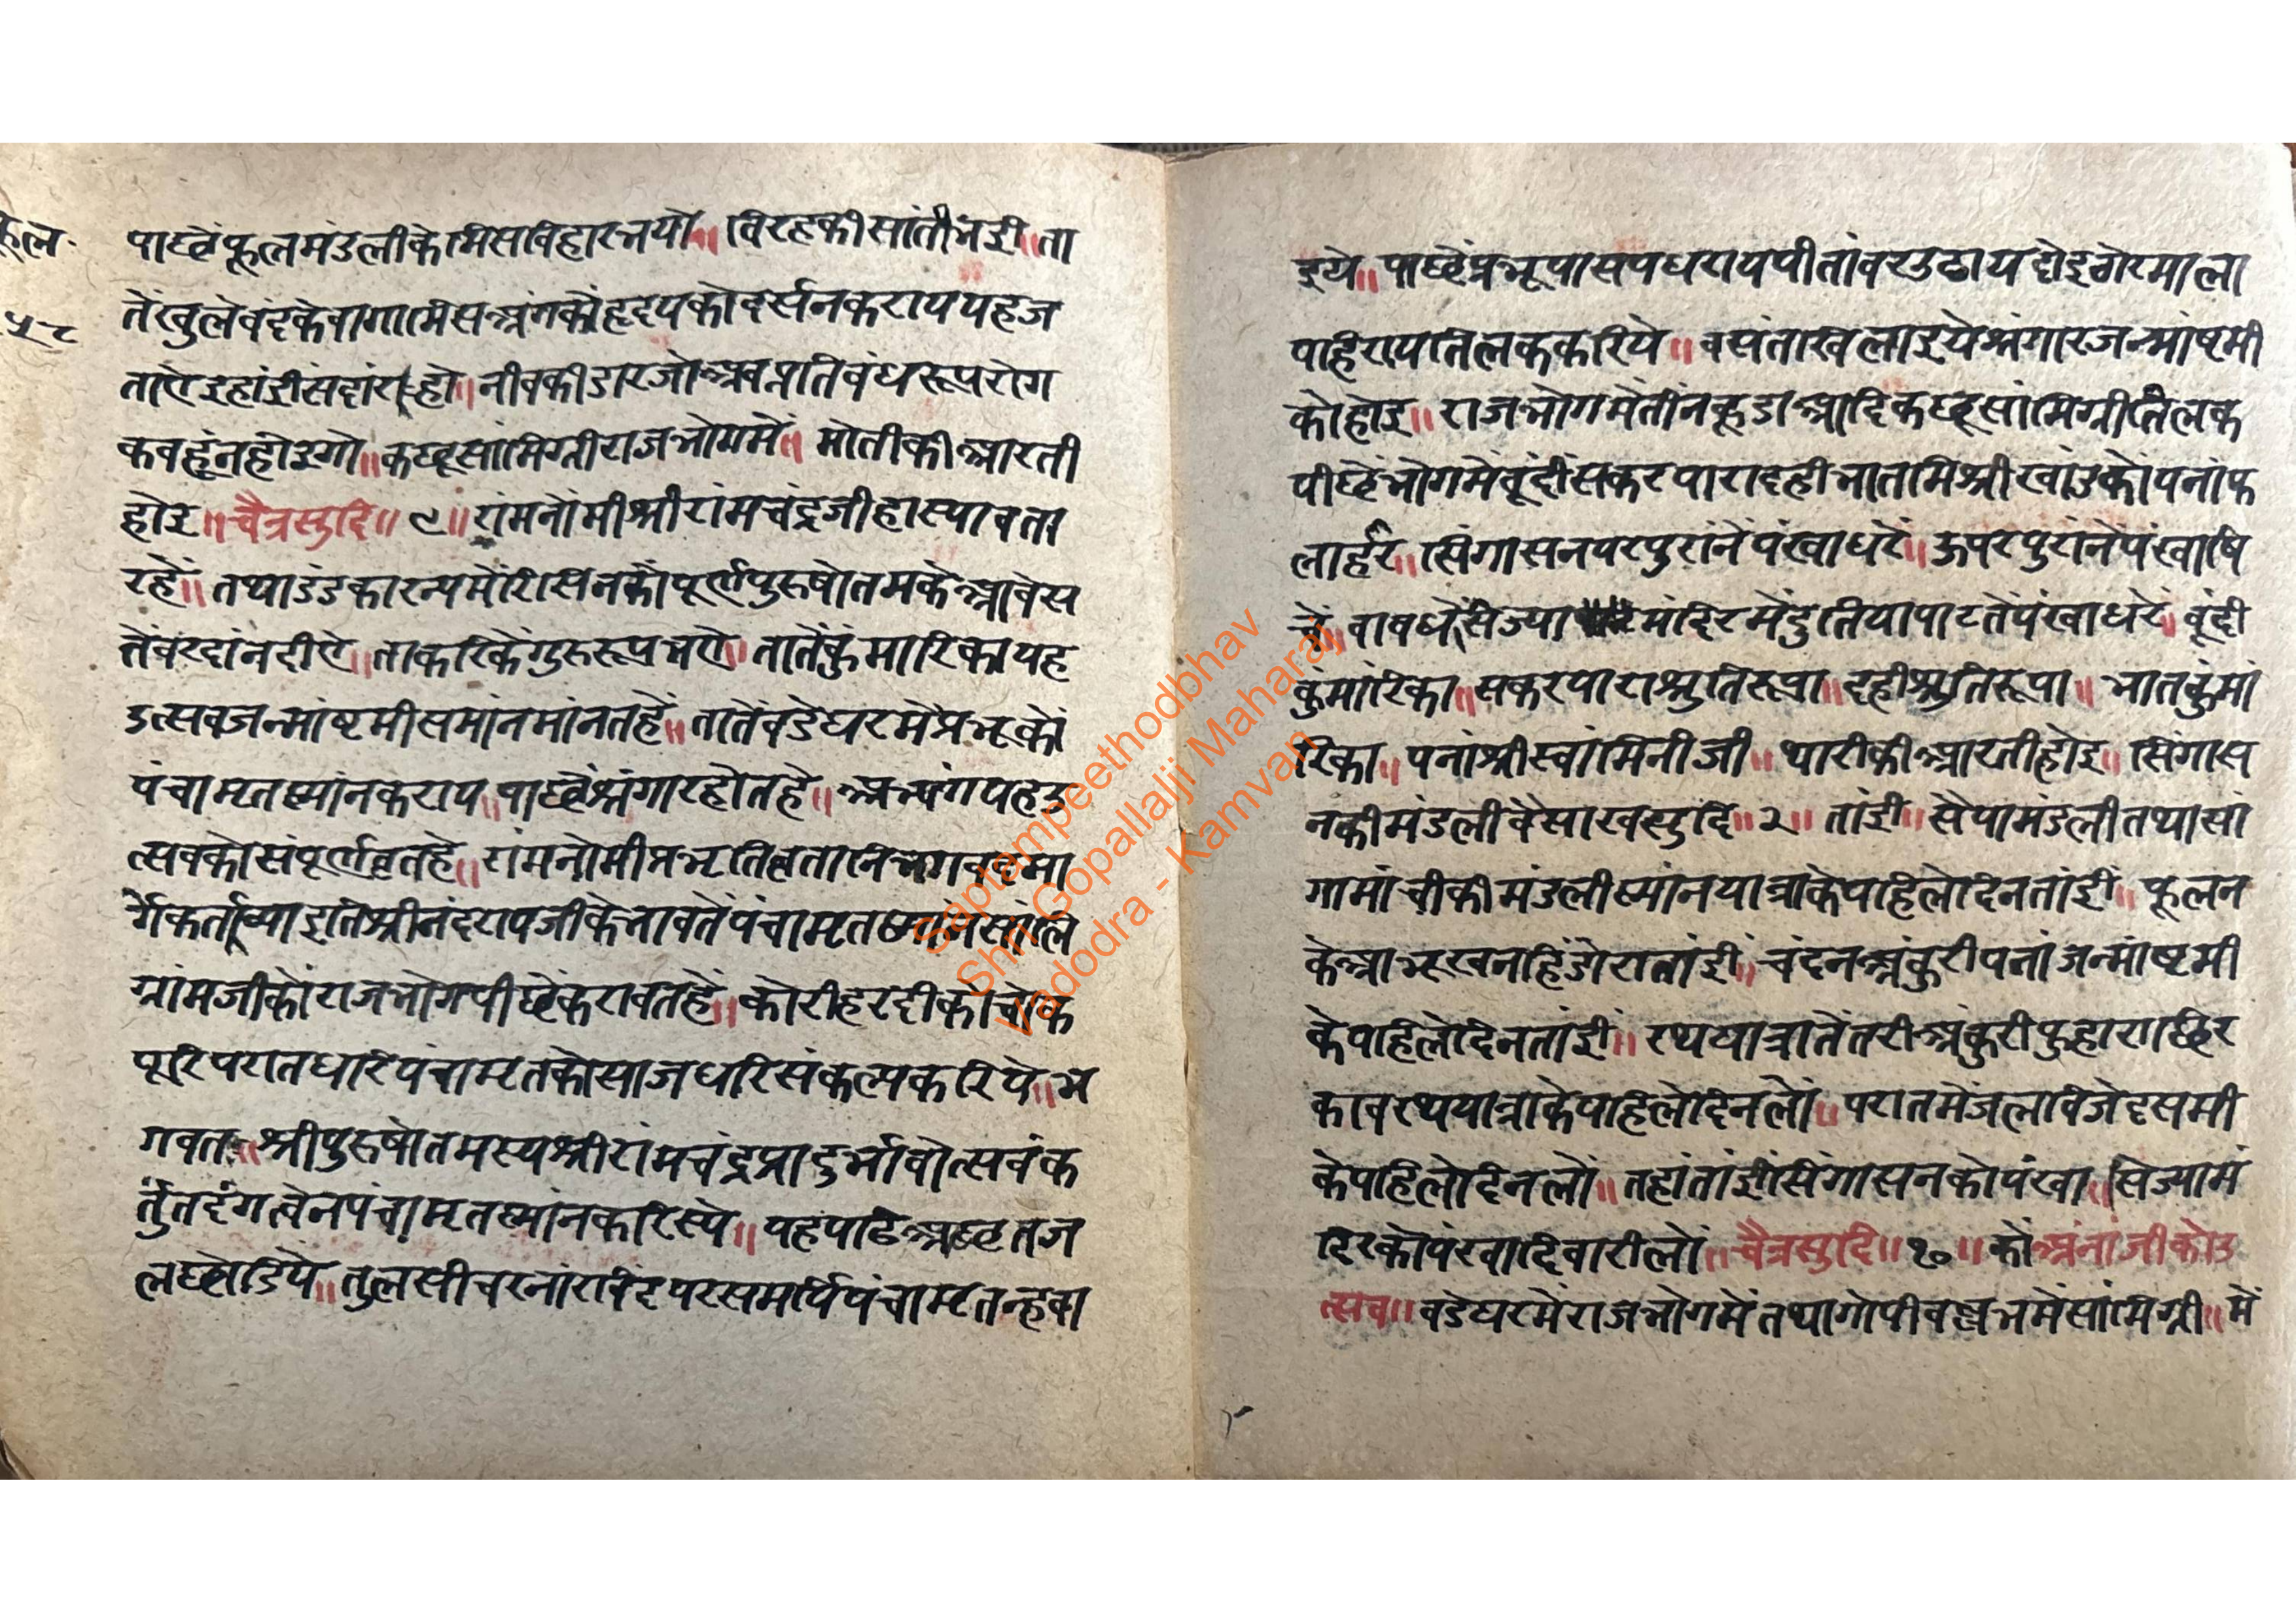 फूल
५८
पाछेंफूलमंडलीकेमिसविहारभयो॥विरहकीसांतीभई॥ता
तेंखुलेबंदकेबागामिसअंगकोंहृदयकोदर्सनकराययहज
ताऐइहांईसदांराहो॥नीबकीडारजोअबप्रतिबंधरूपरोग
कबहूंनहोइगो॥कछूसांमिग्रीराजभोगमें॥मोतीकीआरती
होइ॥चैत्रसुदि॥९॥रांमनोंमीश्रीरांमचंद्रजीहास्यावता
रहें॥तथाडंडकारन्यमेंरिसिनकोंपूर्णपुरुषोतमकेआवेस
तेंबरदांनदीऐ॥ताकरिकेंगुरुरूपभऐ॥तातेंकुंमारिकायह
उत्सवजन्मांष्टमीसमांनमांनतहें॥तातेंबडेघरमेंप्रभूकों
पंचामृतस्नांनकराय॥पाछेंश्रंगारहोतहे॥अभ्यंगयहउ
त्सवकोसंपूर्णव्रतहे॥रांमनोमीप्रभृतिव्रतानिभगवदमा
र्गेकर्ताव्याइतिश्रीनंदरायजीकेभावतेंपंचामृतस्नांनसालि
ग्रांमजीकोंराजभोगपीछेंकरावतहें॥कोरीहरदीकोचोक
पूरिपरातधरिपंचामृतकोसाजधरिसंकल्पकरिये॥भ
गवत॥श्रीपुरुषोतमस्यश्रीरांमचंद्रप्रादुर्भावोत्सवंक
र्तुंतदंगत्वेनपंचामृतस्नांनकरिस्ये॥यहपढिअछतज
लछोडिये॥तुलसीचरनांरविंदपरसमर्पिपंचामृतन्हवा
इये॥पाछेंप्रभूपासपधरायपीतांबरउढायदोइबेरमाला
पहिरायतिलककरिये॥वसंतखिलाइयेश्रंगारजन्मांष्टमी
कोहोइ॥राजभोगमेंतीनकूडाआदिकछूसांमिग्रीतिलक
पीछेंभोगमेंबूंदीसकरपारादहीभातमिश्रीखांडकोपनांफ
लाहर॥सिंगासनपरपुरांनेंपंखाधरें॥ऊपरपुरांनेंपंखाषि
चें॥बाषधेंसिज्यामंदिरमेंदुतियापाटतेंपंखाधरें॥बूंदी
कुंमारिका॥सकरपाराश्रुतिरूपा॥दहीश्रुतिरूपा॥भातकुंमा
रिका॥पनांश्रीस्वांमिनीजी॥थारीकीआरतीहोइ॥सिंगास
नकीमंडलीवैसाखसुदि॥२॥तांई॥सैयामंडलीतथासां
गामांचीकीमंडलीस्नांनयात्राकेपहिलेदिनतांईं॥फूलन
केआभूखनहिंडोरातांईं॥चंदनअंकुरीपनांजन्मांष्टमी
केपहिलेदिनतांईं॥रथयात्रातेंतरीअंकुरीफुहाराछिर
कावरथयात्राकेपहिलेदिनलों॥परातमेंजलविजेदसमी
केपहिलेदिनलों॥तहांतांईंसिंगासनकोपंखा॥सिज्यामं
दिरकोपंखादिवारीलों॥चैत्रसुदि॥१०॥कोंअंनांजीकोउ
त्सव॥बडेघरमेंराजभोगमेंतथागोपीबल्लभमेंसांमिग्री॥में
Saptampeethodbhav
Shri Gopallalji Maharaj
Vadodra - Kamvan